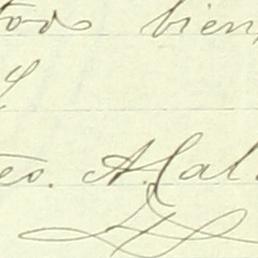 todo bien,
y
eo. A. Cal